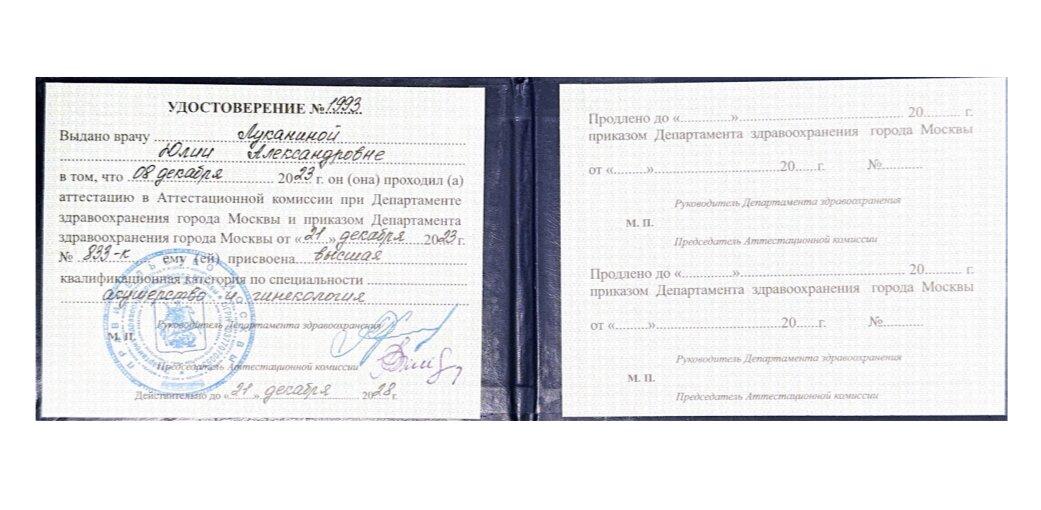 УДОСТОВЕРЕНИЕ № 1993
Выдано врачу Луканиной
Юлии Александровне
в том, что 08 декабря 2023 г. он (она) проходил (а)
аттестацию в Аттестационной комиссии при Департаменте
здравоохранения города Москвы и приказом Департамента
здравоохранения города Москвы от «21» декабря 2023 г.
№ 833-к ему (ей) присвоена высшая
квалификационная категория по специальности
акушерство и гинекология
Руководитель Департамента здравоохранения
М. П.
Председатель Аттестационной комиссии
Действительно до «21» декабря 2028 г.
Продлено до «............»............................................ 20.......... г.
приказом Департамента здравоохранения города Москвы
от «.........»...................................20......г. №...........
Руководитель Департамента здравоохранения
М. П.
Председатель Аттестационной комиссии
Продлено до «............»............................................ 20.......... г.
приказом Департамента здравоохранения города Москвы
от «.........»...................................20......г. №...........
Руководитель Департамента здравоохранения
М. П.
Председатель Аттестационной комиссии